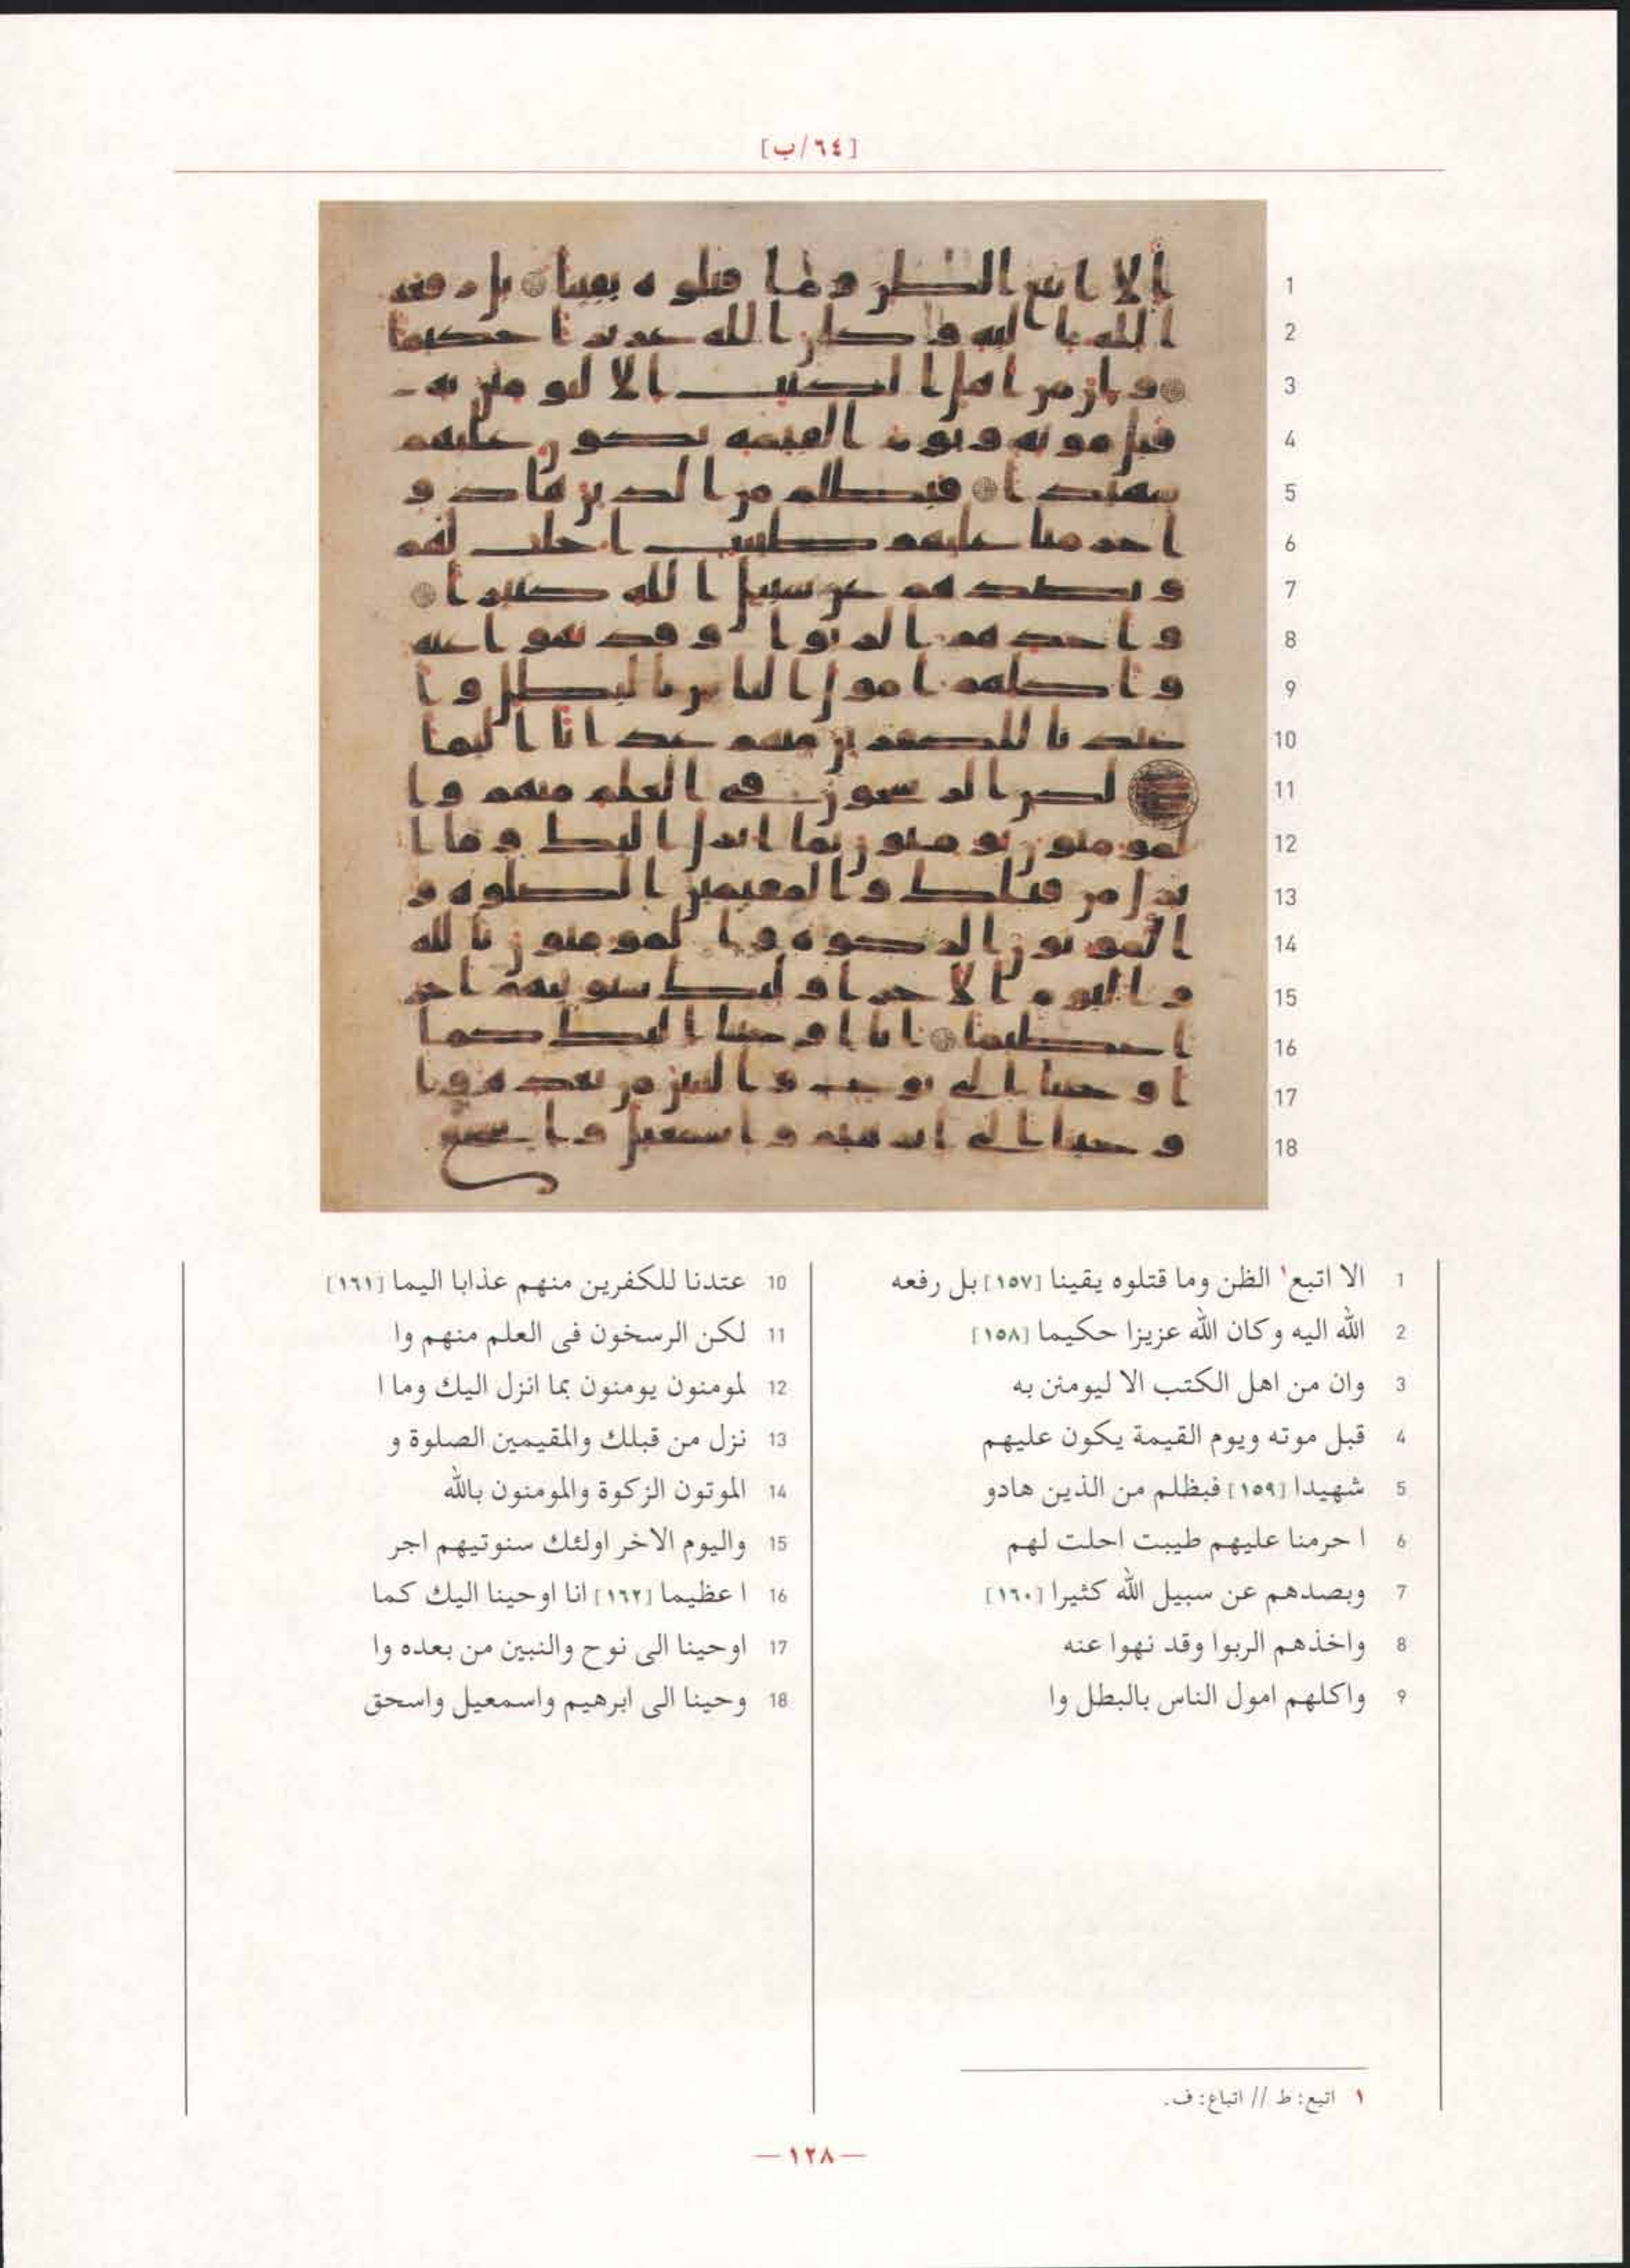 [٦٤/ب]
1 الا اتبع١ الظن وما قتلوه يقينا [١٥٧] بل رفعه
2 الله اليه وكان الله عزيزا حكيما [١٥٨]
3 وان من اهل الكتب الا ليومنن به
4 قبل موته ويوم القيمة يكون عليهم
5 شهيدا [١٥٩] فبظلم من الذين هادو
6 ا حرمنا عليهم طيبت احلت لهم
7 وبصدهم عن سبيل الله كثيرا [١٦٠]
8 واخذهم الربوا وقد نهوا عنه
9 واكلهم امول الناس بالبطل وا
10 عتدنا للكفرين منهم عذابا اليما [١٦١]
11 لكن الرسخون فى العلم منهم وا
12 لمومنون يومنون بما انزل اليك وما ا
13 نزل من قبلك والمقيمين الصلوة و
14 الموتون الزكوة والمومنون بالله
15 واليوم الاخر اولئك سنوتيهم اجر
16 ا عظيما [١٦٢] انا اوحينا اليك كما
17 اوحينا الى نوح والنبين من بعده وا
18 وحينا الى ابرهيم واسمعيل واسحق
١ اتبع: ط // اتباع: ف.
—١٢٨—